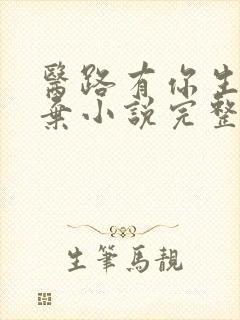 醫路有你生
棄小說完整
生筆馬靚